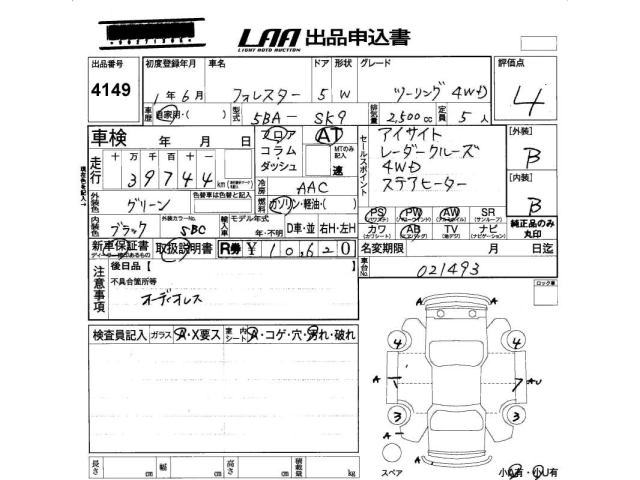 LAA 出品申込書
LIGHT AUTO AUCTION
出品番号 初度登録年月 車名 ドア 形状 グレード 評価点
4149 1年 6月 フォレスター 5 W ツーリング 4WD 4
車歴 自家用・( ) 型式 5BA- SK9 排気量 2,500 cc 定員 5 人
車検 年 月 日 フロア コラム・ダッシュ AT MTのみ記入 速
走行 十 万 千 百 十 一
39744 km
冷房 AAC
外装色 グリーン 色替車は色替と記入 燃料 ガソリン・軽油・( )
内装色 ブラック 外装カラーNo. SBC 輸入車 モデル年式 年・不明 D車・並 右H・左H
セールスポイント
アイサイト
レーダークルーズ
4WD
ステアヒーター
[外装] B
[内装] B
PS PW AW SR
カワ AB TV ナビ
純正品のみ丸印
新車保証書 取扱説明書 R券 ¥ 10,620 名変期限 月 日迄
ディーラー印のあるもの
車台No. 021493
注意事項
後日品【
不具合箇所等
オーディオレス
ロック車
検査員記入 ガラス A・X要ス 室内シート A・コゲ・穴・汚れ・破れ
4 4
A 1 7 AU
3 3
A A
A
長さ cm 幅 cm 高さ cm 積載量 kg
スペア
小A有・小U有